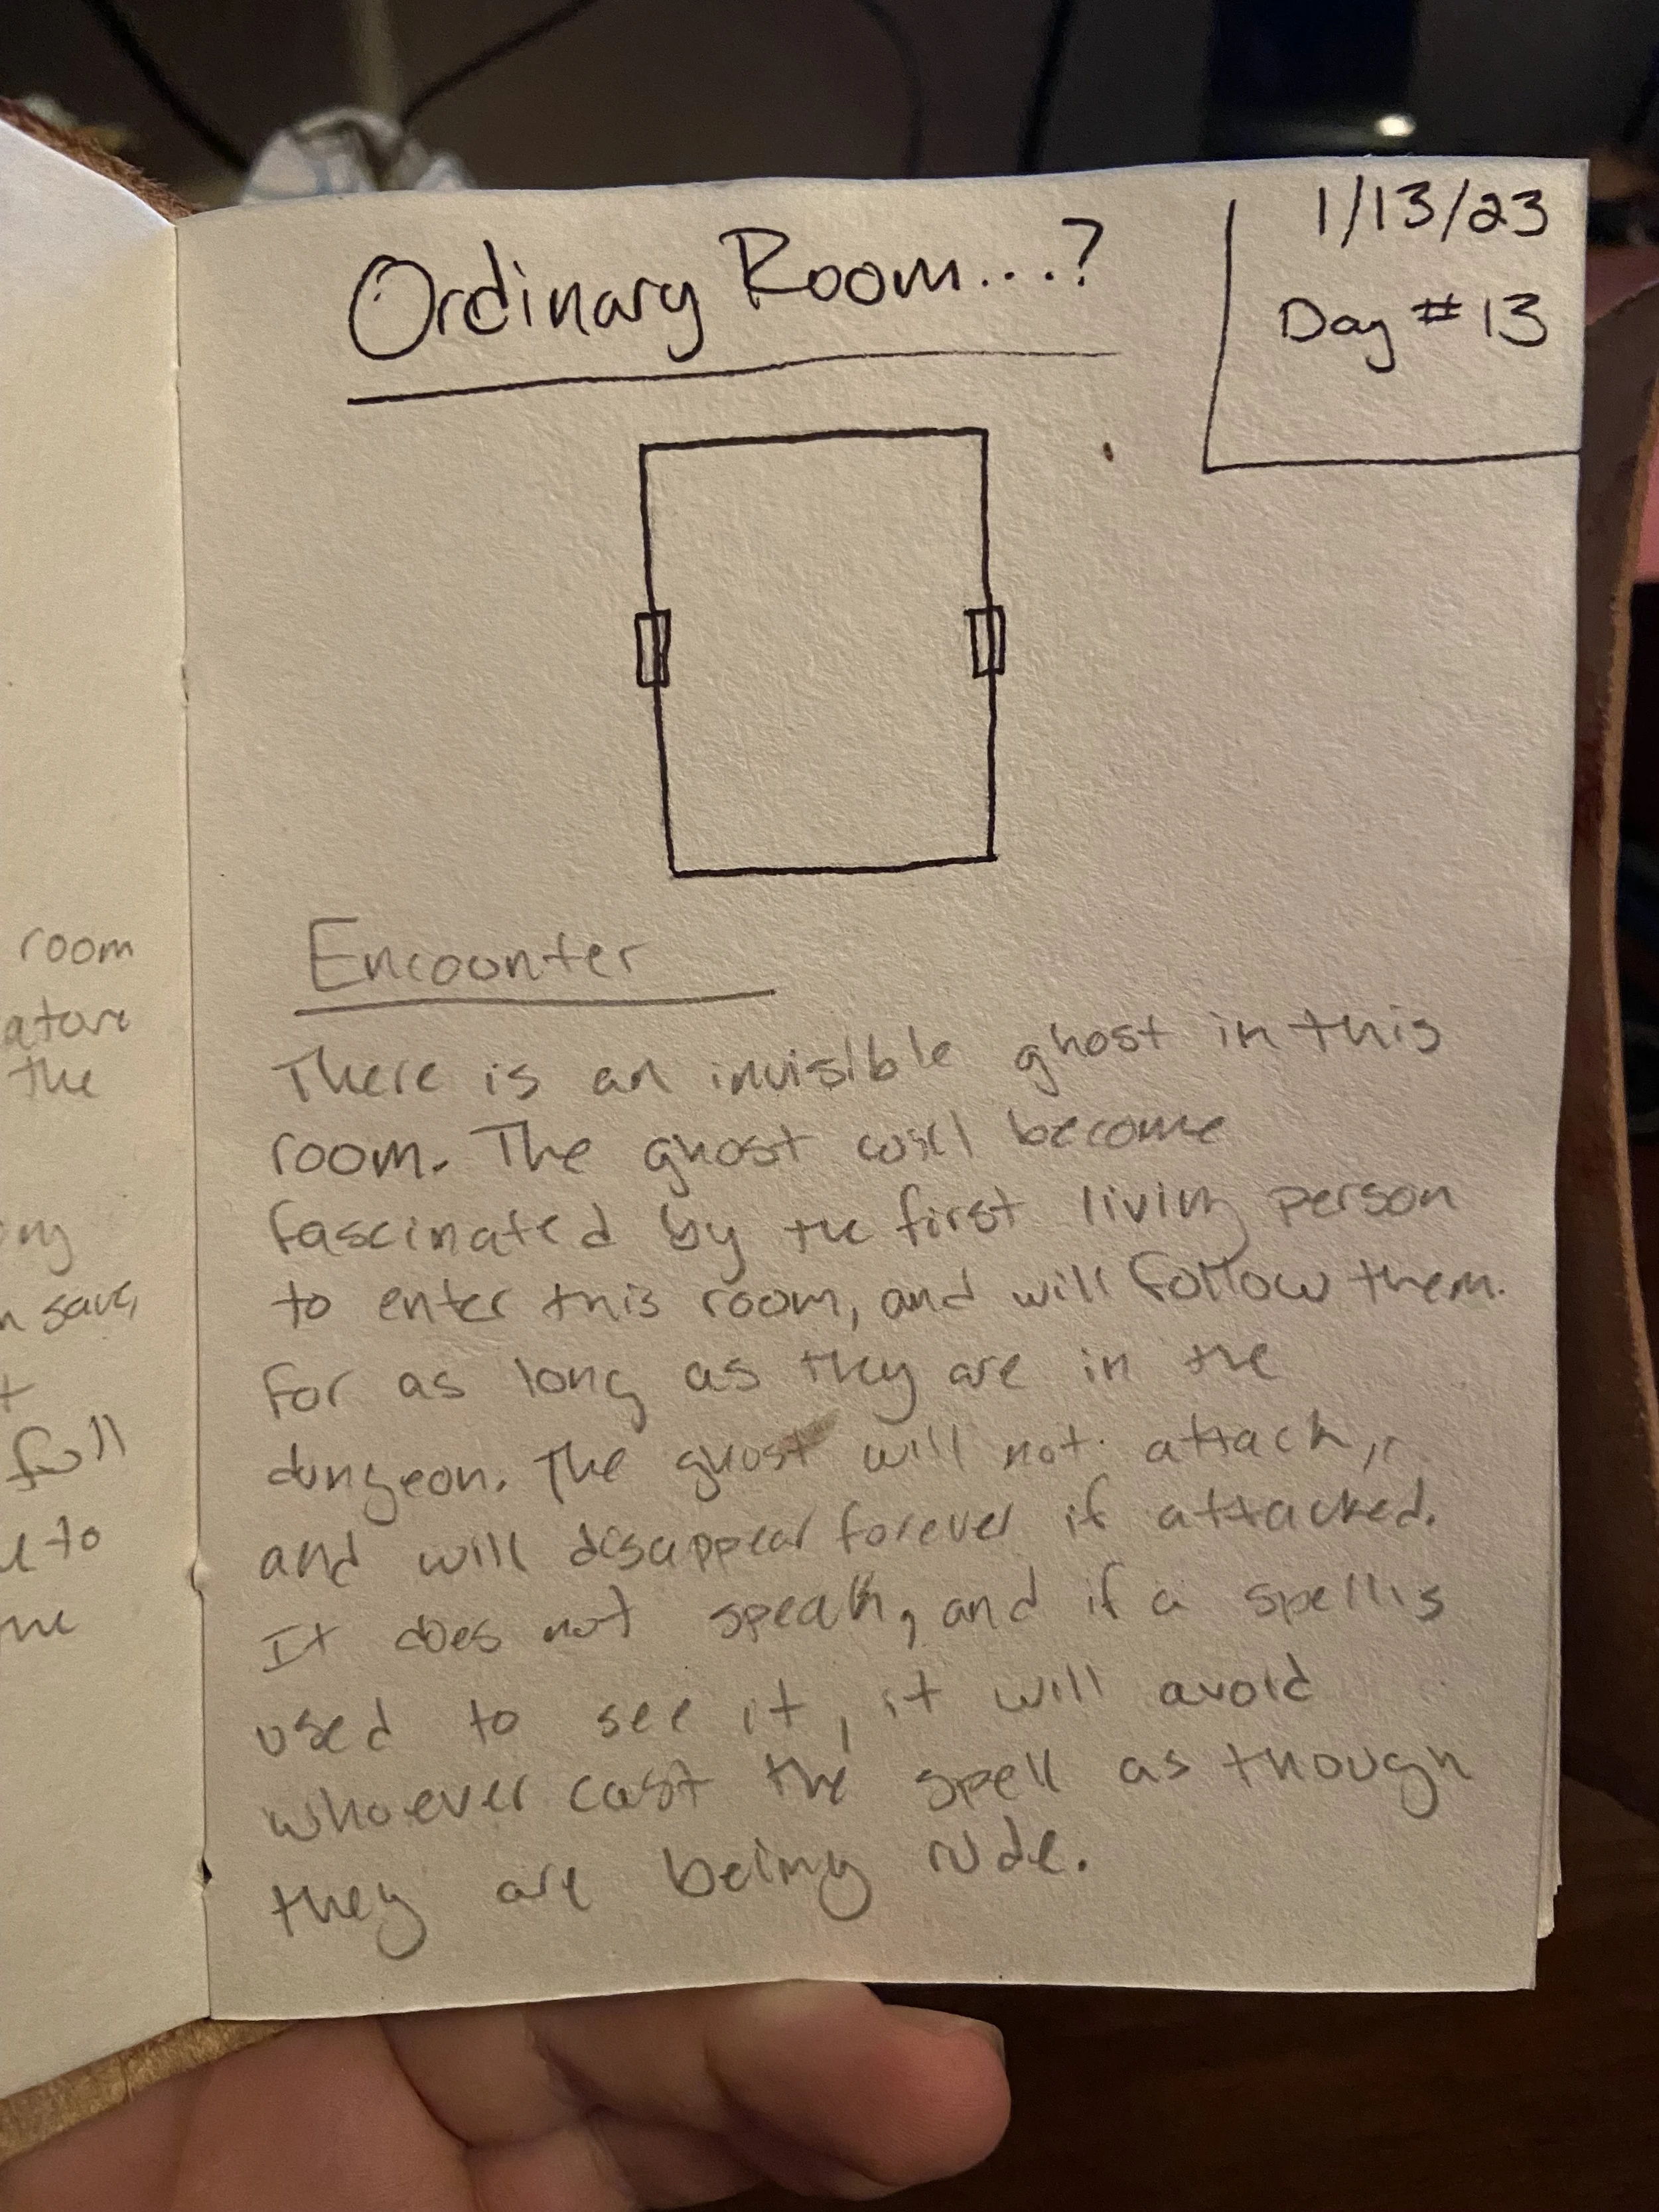 Ordinary Room...?
1/13/23
Day # 13
Encounter
There is an invisible ghost in this
room. The ghost will become
fascinated by the first living person
to enter this room, and will follow them.
for as long as they are in the
dungeon. The ghost will not attack,
and will disappear forever if attacked.
It does not speak, and if a spell is
used to see it, it will avoid
whoever cast the spell as though
they are being rude.
room
the
save,
full
to